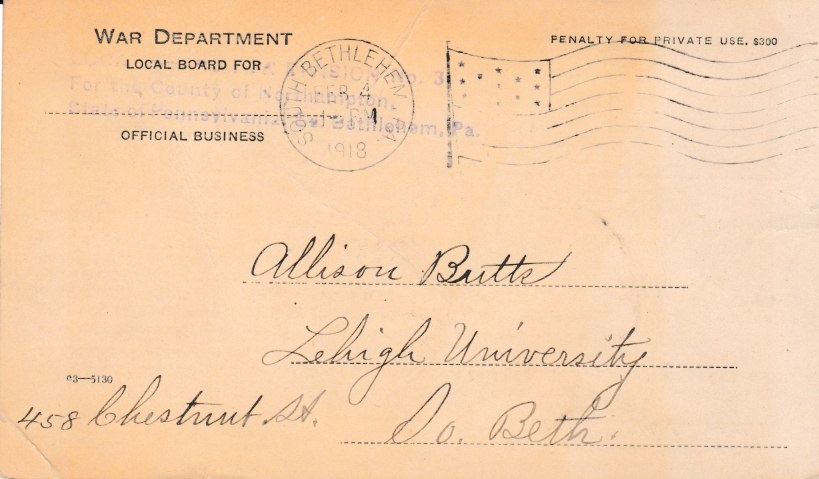 WAR DEPARTMENT
PENALTY FOR PRIVATE USE, $300
LOCAL BOARD FOR
DIVISION No. 3
For the County of Northampton,
State of Pennsylvania, So. Bethlehem, Pa.
OFFICIAL BUSINESS
SOUTH BETHLEHEM, PA.
FEB 4
1918
Allison Butts
Lehigh University
03—5130
458 Chestnut St.
So. Beth.